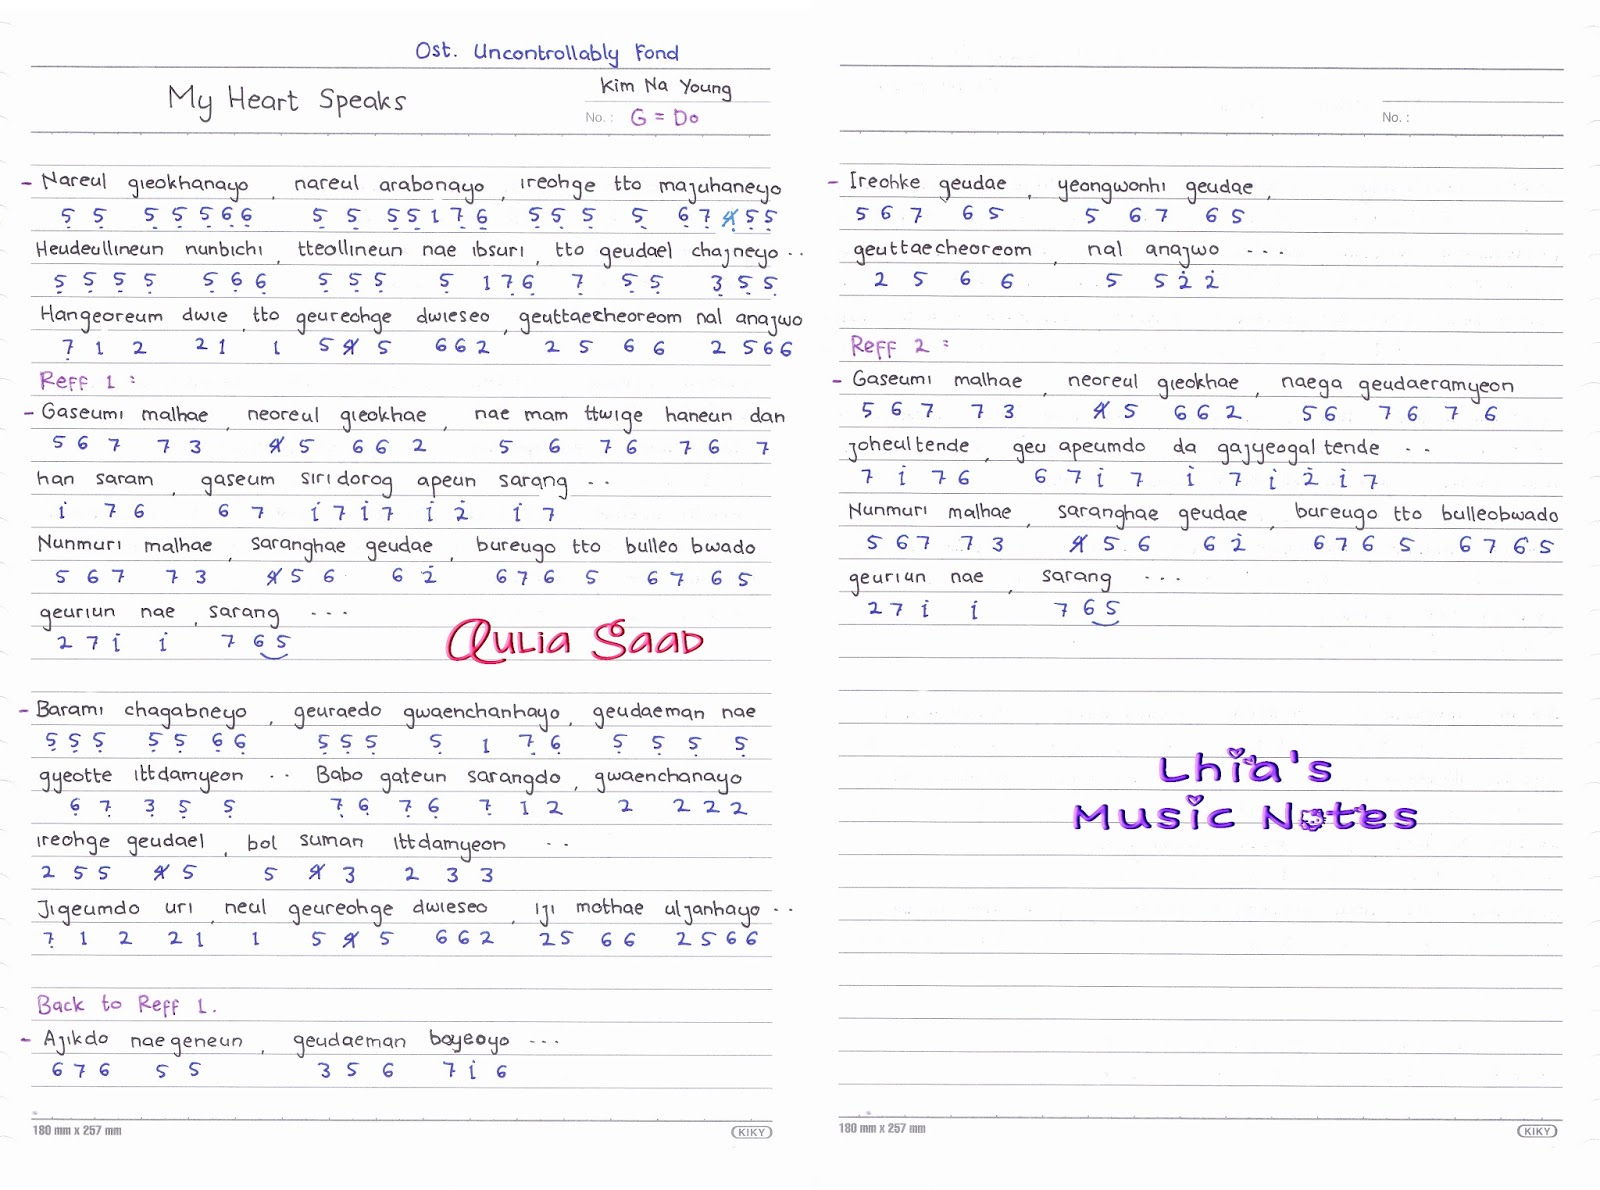 Ost. Uncontrollably Fond
My Heart Speaks
Kim Na Young
No. : G = Do
- Nareul gieokhanayo , nareul arabonayo , ireohge tto majuhaneyo
5 5 5 5 5 6 6 5 5 5 5 1 7 6 5 5 5 5 6 7 4 5 5
Heudeullineun nunbichi , tteollineun nae ibsuri , tto geudael chajneyo ..
5 5 5 5 5 6 6 5 5 5 5 1 7 6 7 5 5 3 5 5
Hangeoreum dwie , tto geureohge dwieseo , geuttaecheoreom nal anajwo
7 1 2 2 1 1 5 4 5 6 6 2 2 5 6 6 2 5 6 6
Reff 1 :
- Gaseumi malhae , neoreul gieokhae , nae mam ttwige haneun dan
5 6 7 7 3 4 5 6 6 2 5 6 7 6 7 6 7
han saram , gaseum siridorog apeun sarang ..
1 7 6 6 7 1 7 1 7 1 2 1 7
Nunmuri malhae , saranghae geudae , bureugo tto bulleo bwado
5 6 7 7 3 4 5 6 6 2 6 7 6 5 6 7 6 5
geuriun nae , sarang ...
2 7 1 1 7 6 5
Aulia Saad
- Barami chagabneyo , geuraedo gwaenchanhayo , geudaeman nae
5 5 5 5 5 6 6 5 5 5 5 1 7 6 5 5 5 5
gyeotte ittdamyeon .. Babo gateun sarangdo , gwaenchanayo
6 7 3 5 5 7 6 7 6 7 1 2 2 2 2 2
ireohge geudael , bol suman ittdamyeon ..
2 5 5 4 5 5 4 3 2 3 3
Jigeumdo uri , neul geureohge dwieseo , iji mothae uljanhayo ..
7 1 2 2 1 1 5 4 5 6 6 2 2 5 6 6 2 5 6 6
Back to Reff 1.
- Ajikdo naegeneun , geudaeman boyeoyo ...
6 7 6 5 5 3 5 6 7 1 6
180 mm x 257 mm KIKY
No. :
- Ireohke geudae , yeongwonhi geudae ,
5 6 7 6 5 5 6 7 6 5
geuttaecheoreom , nal anajwo ...
2 5 6 6 5 5 2 2
Reff 2 :
- Gaseumi malhae , neoreul gieokhae , naega geudaeramyeon
5 6 7 7 3 4 5 6 6 2 5 6 7 6 7 6
joheultende , geu apeumdo da gajyeogal tende ..
7 1 7 6 6 7 1 7 1 7 1 2 1 7
Nunmuri malhae , saranghae geudae , bureugo tto bulleobwado
5 6 7 7 3 4 5 6 6 2 6 7 6 5 6 7 6 5
geuriun nae , sarang ...
2 7 1 1 7 6 5
Lhia's
Music Notes
180 mm x 257 mm KIKY